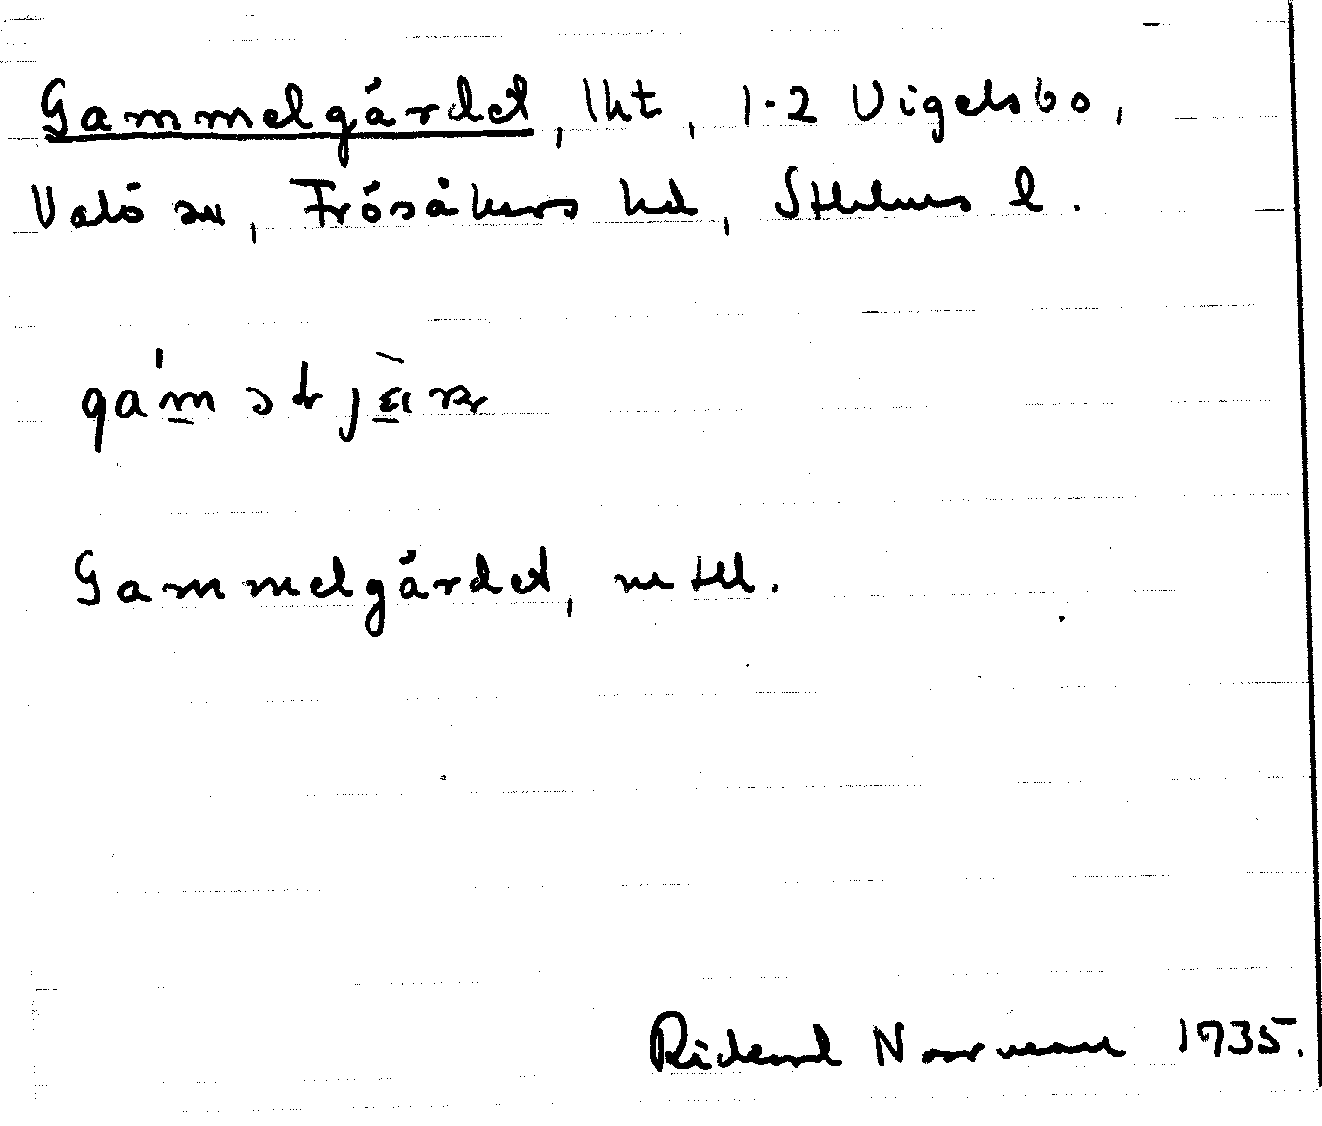 Gammelgärdet, lht, 1-2 Vigelsbo,
Valö sn, Frösåkers hd, Sthlms l.
Gammelgärdet, mtbl.
Rickard Norrman 1935.